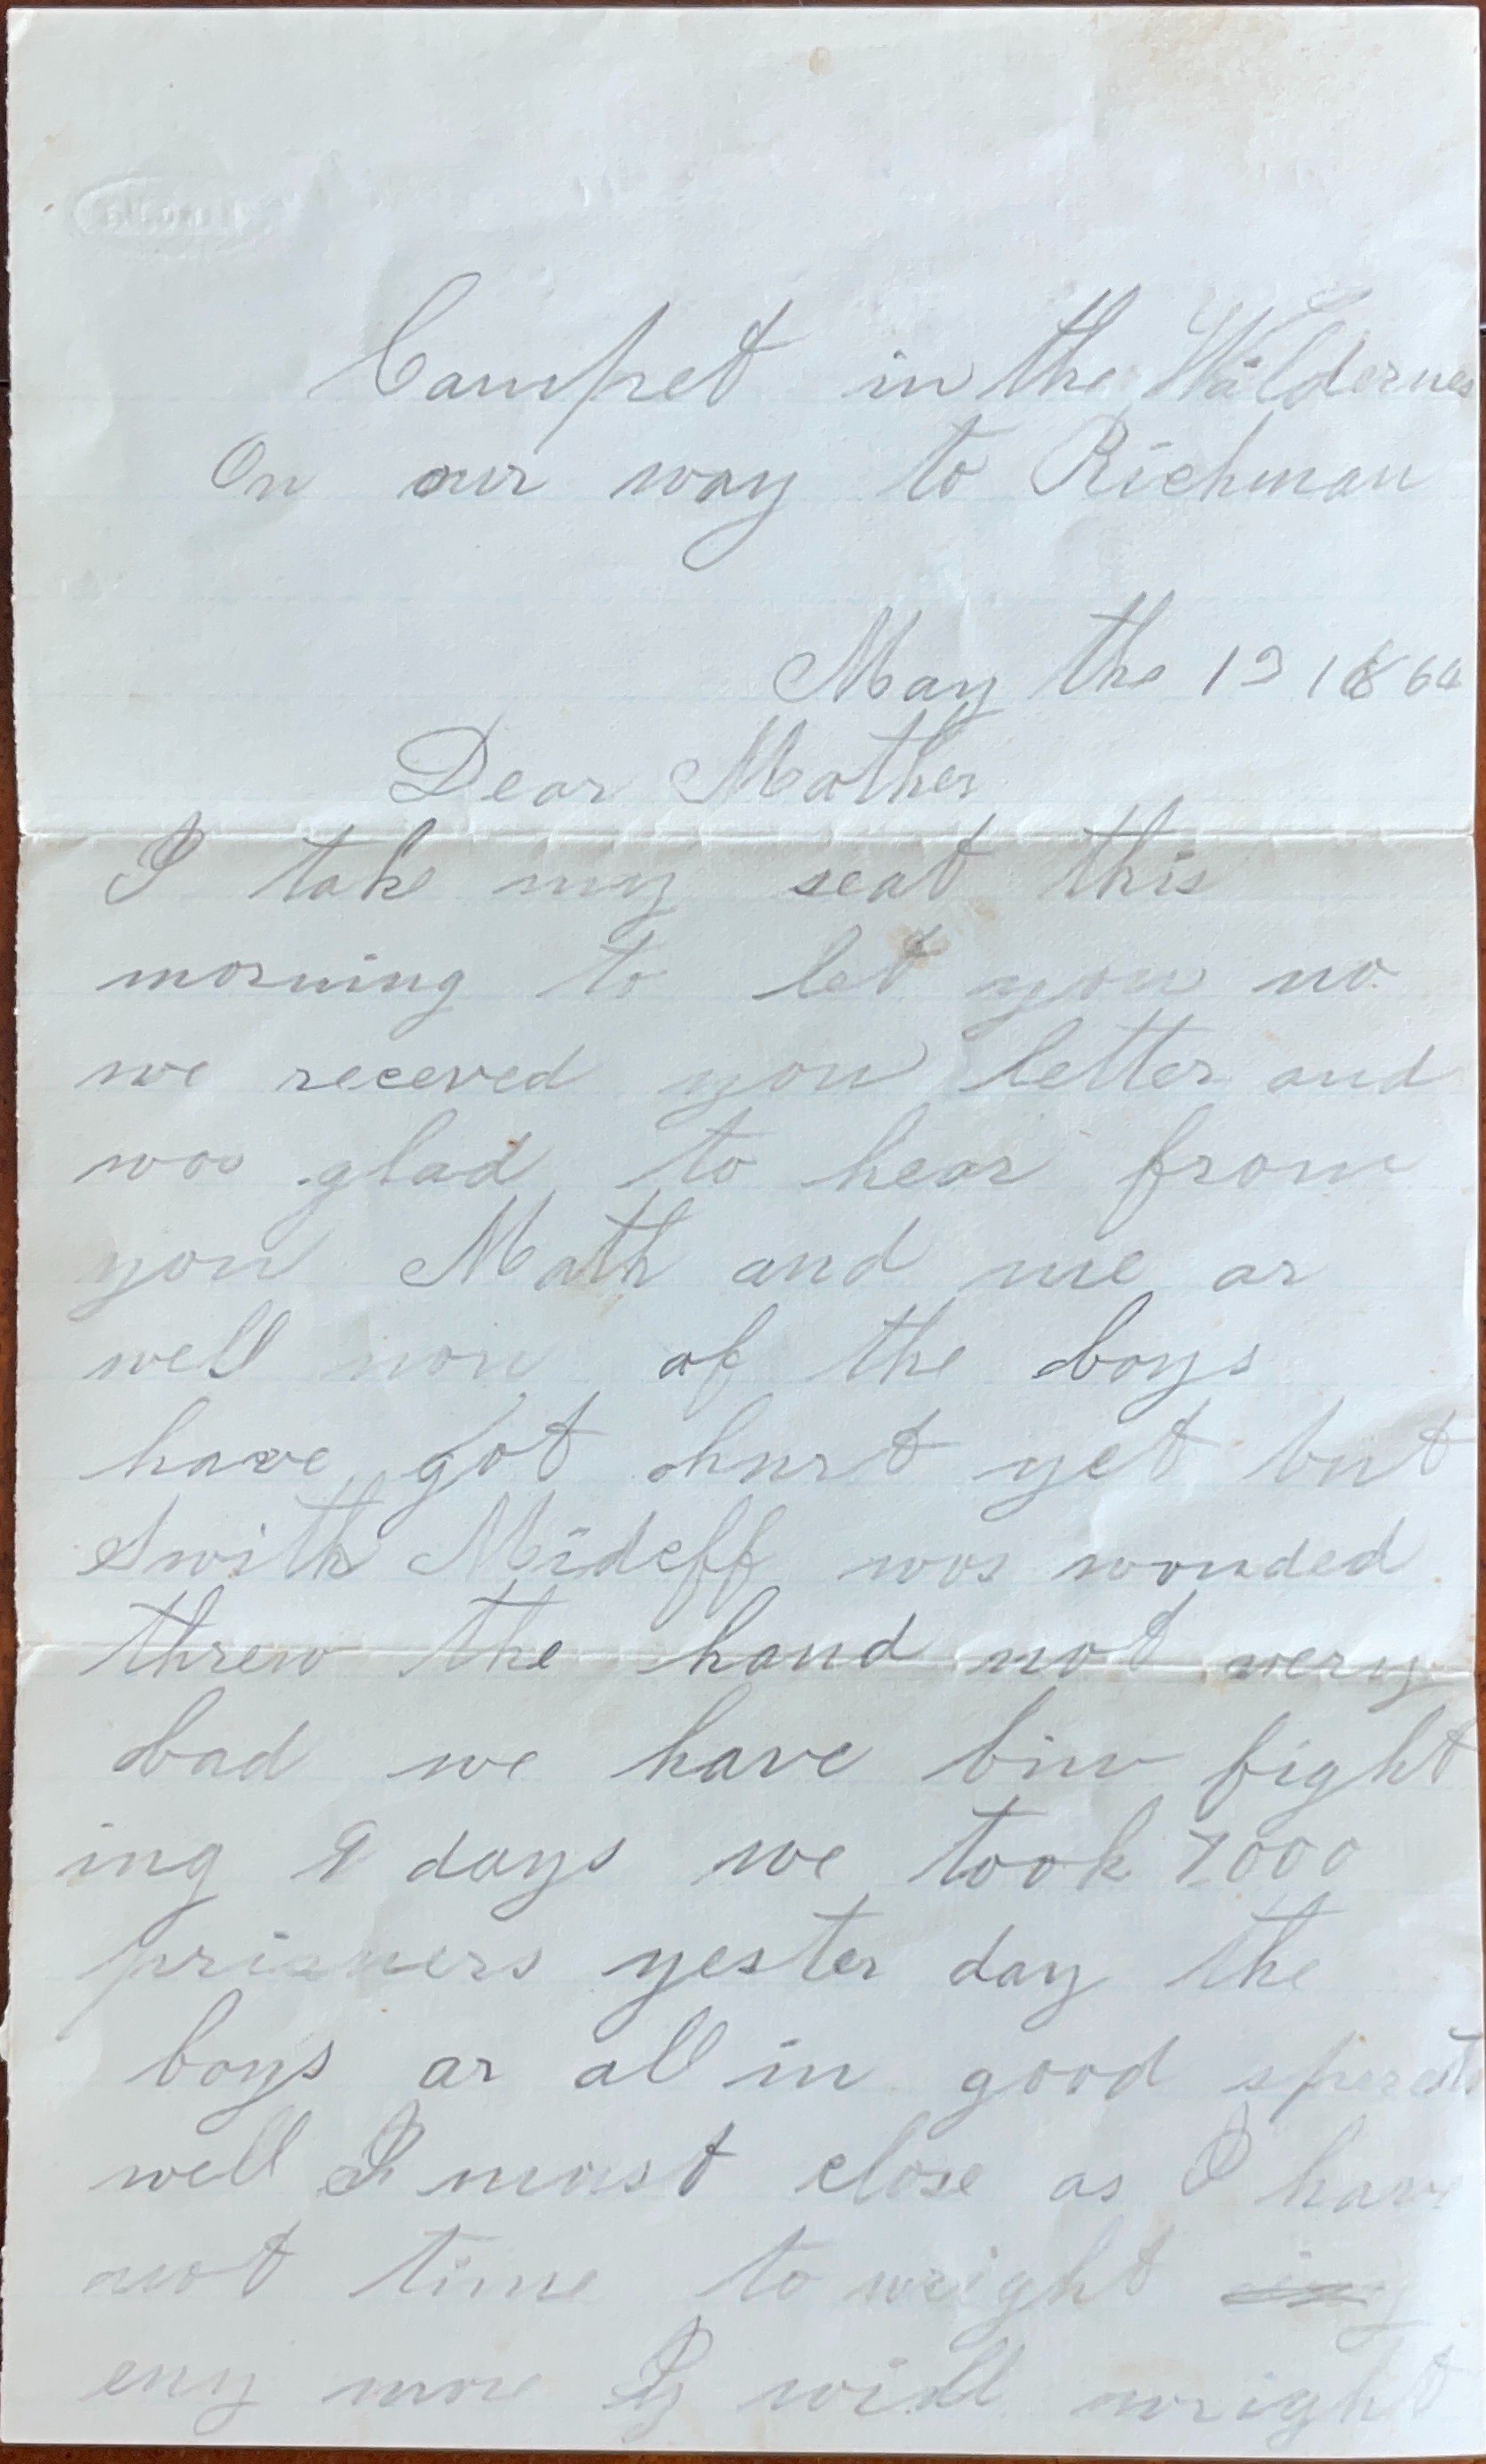 Campet in the Wildernes
On our way to Richman
May the 13 1864
Dear Mother
I take my seat this
morning to let you no
we receved you letter and
was glad to hear from
you Math and me ar
well non of the boys
have got hurt yet but
Smith Mideff was wonded
threw the hand not very
bad we have bin fight
ing 9 days we took 7000
prisners yester day the
boys ar all in good
well I must close as I have
not time to wright
eny more I will wright